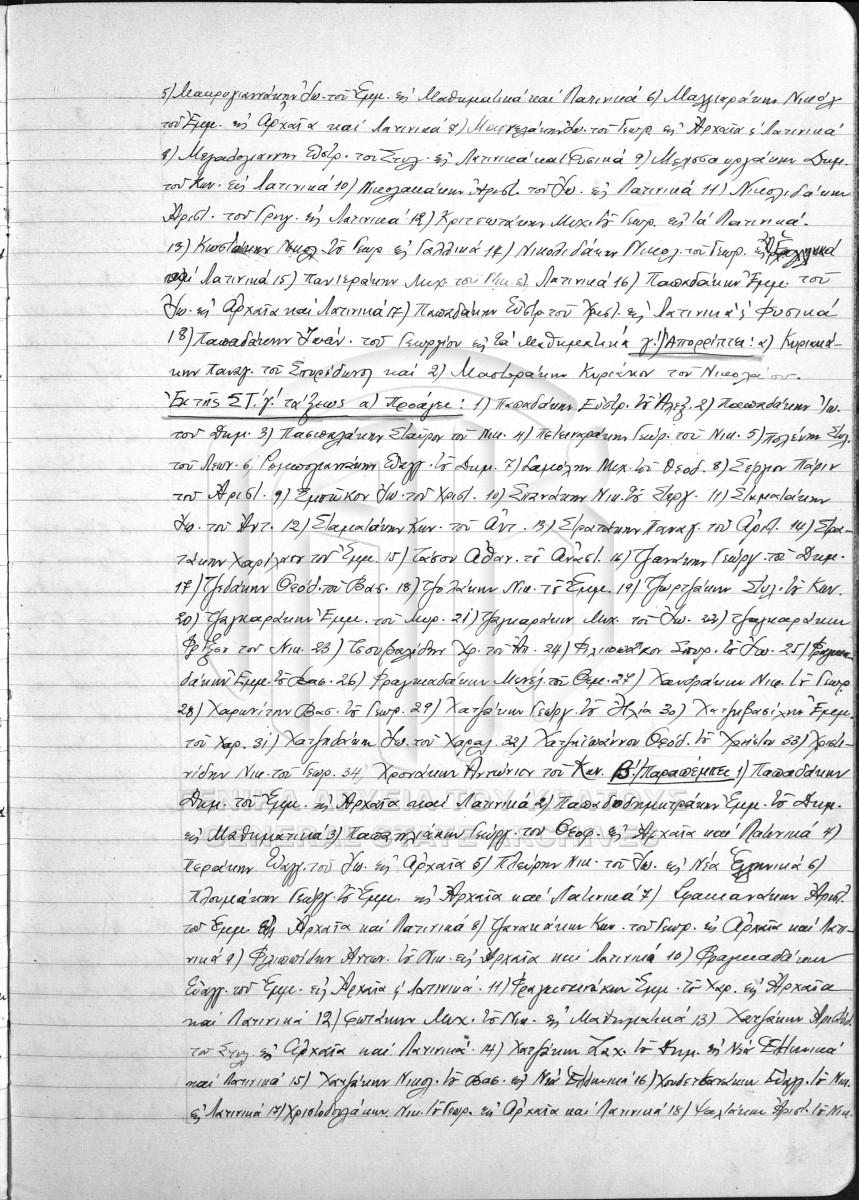 5) Μακρογιαννάκην Ἰω. τοῦ Ἐμμ. εἰς Μαθηματικά καί Λατινικά 6) Μαλλιαράκην Νικόλ
τοῦ Ἐμμ. εἰς Ἀρχαῖα καί Λατινικά 7) Ἰω. τοῦ Γεωρ. εἰς Ἀρχαῖα & Λατινικά
8) Μεγαλογιάννην Εὐστρ. τοῦ Στυλ. εἰς Λατινικά καί Φυσικά 9) Δημ.
τοῦ Κων. εἰς Λατινικά 10) Νικολακάκην Ἀριστ. τοῦ Ἰω. εἰς Λατινικά 11) Νικολιδάκην
Ἀριστ. τοῦ Γρηγ. εἰς Λατινικά 12) Κριτσωτάκην Μιχ. τοῦ Γεωρ. εἰς τά Λατινικά.
13) Κωστάκην Νικολ. τοῦ Γεωρ εἰς Γαλλικά 14) Νικολιδάκην Νικολ. τοῦ Γεωρ. εἰς
καί Λατινικά 15) Παντεράκην Μιχ. τοῦ Νικ. εἰς Λατινικά 16) Παπαδάκην Ἐμμ. τοῦ
Ἰω. εἰς Ἀρχαῖα καί Λατινικά 17) Παπαδάκην Εὐστρ. τοῦ Χριστ. εἰς Λατινικά & Φυσικά
18) Παπαδάκην Ἰωάν. τοῦ Γεωργίου εἰς τά Μαθηματικά γ.') Ἀπορρίπτει: α) Κυριακά-
κην Παναγ. τοῦ Σπυρίδωνος καί 2) Μαστοράκην Κυριάκον τοῦ Νικολάου.
Ἐκ τῆς ΣΤ.'γ' τάξεως α) Προάγει: 1) Παπαδάκην Εὐστρ. τοῦ Ἀλεξ. 2) Παπαδάκην Ἰω.
τοῦ Δημ. 3) Πασπαλάκην Σταῦρον τοῦ Νικ. 4) Γεωρ. τοῦ Νικ. 5) Πολέντην Στυλ.
τοῦ Λεων. 6) Εὐαγγ. τοῦ Δημ. 7) Σαμόλην Μιχ. τοῦ Θεοδ. 8) Σέργιον Πάριν
τοῦ Ἀριστ. 9) Σμπῶκον Ἰω. τοῦ Χριστ. 10) Σπανάκην Νικ. τοῦ Στεργ. 11) Σταματάκην
Ἰω. τοῦ Ἀντ. 12) Σταματάκην Κων. τοῦ Ἀντ. 13) Στρατάκην Παναγ. τοῦ Ἀριστ. 14) Στρα-
τάκην Χαρίλαον τοῦ Ἐμμ. 15) Τάσον Ἀθαν. τοῦ Ἀναστ. 16) Τζανάκην Γεώργ. τοῦ Δημ.
17) Τζεδάκην Θεόδ. τοῦ Βασ. 18) Τζολάκην Νικ. τοῦ Ἐμμ. 19) Τζωρτζάκην Στυλ. τοῦ Κων.
20) Τζαγκαράκην Ἐμμ. τοῦ Μυρ. 21) Τζαγκαράκην Μιχ. τοῦ Ἰω. 22) Τζαγκαράκην
Φρίξον τοῦ Νικ. 23) Τσουβαλίδην Χρ. τοῦ Ἀπ. 24) Φιλιππάκον Σπυρ. τοῦ Ἰω. 25) Φραγκια-
δάκην Ἐμμ. τοῦ Βασ. 26) Φραγκιαδάκην Μενέλ. τοῦ Θεμ. 27) Χανδράκην Νικ. τοῦ Γεωρ
28) Χαρωνίτην Βασ. τοῦ Γεωρ. 29) Χατζάκην Γεώργ. τοῦ Ἠλία 30) Χατζηβασίλην Ἐμμ.
τοῦ Χαρ. 31) Χατζηδάκην Ἰω. τοῦ Χαραλ. 32) Χατζηϊωάννου Θεόδ. τοῦ Χρήστου 33) Χριστι-
νίδην Νικ. τοῦ Γεωρ. 34) Χρονάκην Ἀντώνιον τοῦ Κων. β') Παραπέμπει 1) Παπαδάκην
Δημ. τοῦ Ἐμμ. εἰς Ἀρχαῖα καί Λατινικά 2) Παπαδοδημητράκην Ἐμμ. τοῦ Δημ.
εἰς Μαθηματικά 3) Παπαηλιάκην Γεώργ. τοῦ Θεοφ. εἰς Ἀρχαῖα καί Λατινικά 4)
Περάκην Εὐαγγ. τοῦ Ἰω. εἰς Ἀρχαῖα 5) Πλεύρην Νικ. τοῦ Ἰω. εἰς Νέα Ἑλληνικά 6)
Πλουμάκην Γεώργ. τοῦ Ἐμμ. εἰς Ἀρχαῖα καί Λατινικά 7) Ἀριστ.
τοῦ Ἐμμ. εἰς Ἀρχαῖα καί Λατινικά 8) Τζανακάκην Κων. τοῦ Γεωρ. εἰς Ἀρχαῖα καί Λατι-
νικά 9) Φιλιππίδην Ἀντων. τοῦ Νικ. εἰς Ἀρχαῖα καί Λατινικά 10) Φραγκιαδάκην
Εὐαγγ. τοῦ Ἐμμ. εἰς Ἀρχαῖα & Λατινικά. 11) Φραγκισκινάκην Ἐμμ. τοῦ Χαρ. εἰς Ἀρχαῖα
καί Λατινικά 12) Φωτάκην Μιχ. τοῦ Νικ. εἰς Μαθηματικά 13) Χατζάκην Ἀριστείδ.
τοῦ Στυλ. εἰς Ἀρχαῖα καί Λατινικά. 14) Χατζάκην Ζαχ. τοῦ Δημ. εἰς Νέα Ἑλληνικά
καί Λατινικά 15) Χατζάκην Νικολ. τοῦ Βασ. εἰς Νέα Ἑλληνικά 16) Εὐαγγ. τοῦ Νικ.
εἰς Λατινικά 17) Χριστοδουλάκην Νικ. τοῦ Γεωρ. εἰς Ἀρχαῖα καί Λατινικά 18) Ψαλτάκην Ἀριστ. τοῦ Νικ.
ΓΕΝΙΚΑ ΑΡΧΕΙΑ ΤΟΥ ΚΡΑΤΟΥΣ
GENERAL STATE ARCHIVES